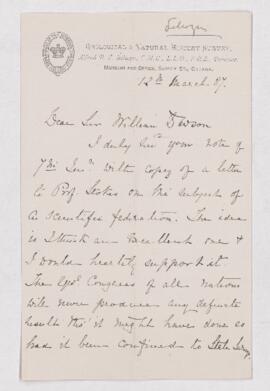 Selwyn
GEOLOGICAL & NATURAL HISTORY SURVEY,
Alfred R. C. Selwyn, C.M.G., L.L.D., F.R.S., Director.
MUSEUM AND OFFICE, SUSSEX ST., OTTAWA.
12th March. 87.
Dear Sir William Dawson
I duly recd your note of
7th Inst. with copy of a letter
to Prof. Stokes on the subject of
a scientific federation. The idea
is I think an excellent one &
I would heartily support it.
The Geol Congress of all nations
will never produce any definite
results tho' it might have done so
had it been confined to State Surveys